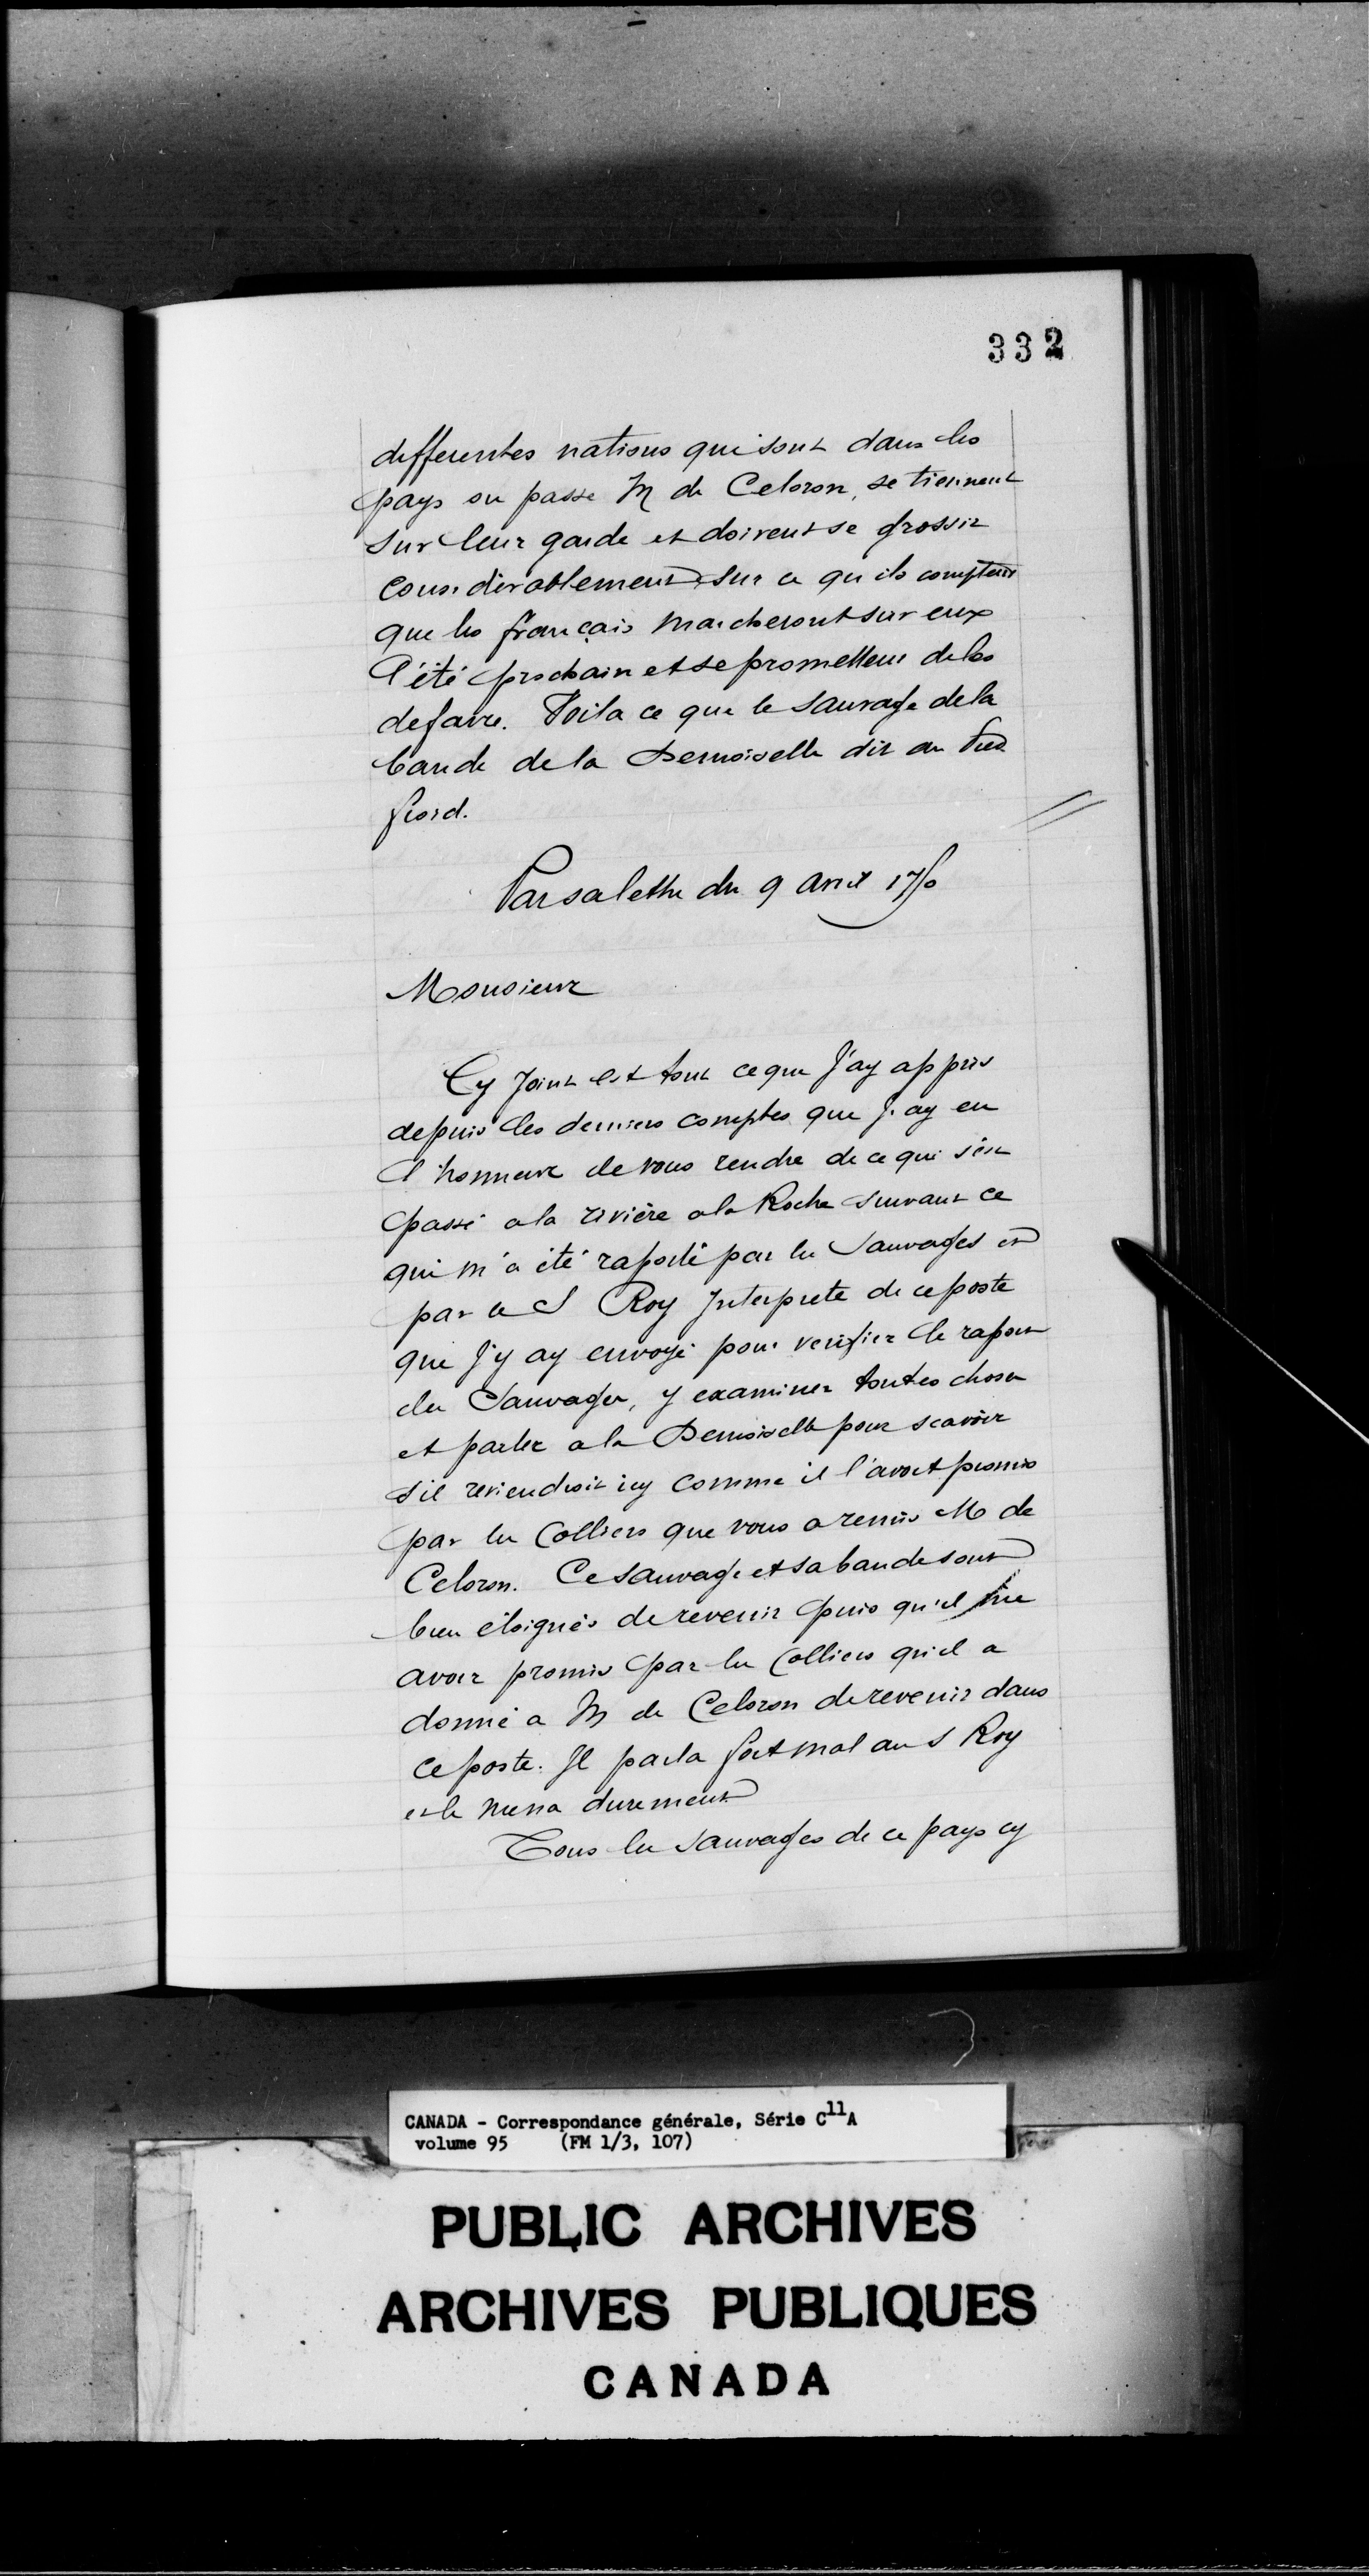 332
differentes nations qui sont dans les
pays ou passe M de Celoron, se tiennent
sur leur garde et doivent se grossir
considerablement sur ce qu ils comptent
que les français marcheront sur eux
l'été prochain et se promettent de les
defaire. Voila ce que le Sauvage de la
bande de la Demoiselle dit au Pied
froid.
Par sa lettre du 9 avril 1750
Monsieur
Cy joint est tout ce que j'ay appris
depuis les derniers comptes que j'ay eu
l'honneur de vous rendre de ce qui s'est
passé a la rivière a la Roche suivant ce
qui m'a été raporté par les Sauvages et
par le S Roy Interprete de ce poste
que j'y ay envoyé pour verifier le raport
des Sauvages, y examiner toutes choses
et parler a la Demoiselle pour scavoir
s'il reviendroit icy comme il l'avoit promis
par les Colliers que vous a remis M de
Celoron. Ce sauvage et sa bande sont
bien éloignés de revenir puis qu'il nie
avoir promis par les Colliers qu'il a
donné a M de Celoron de revenir dans
ce poste. Il parla fort mal au S Roy
et le mena durement
Tous les sauvages de ce pays cy
CANADA - Correspondance générale, Série C11A
volume 95 (FM 1/3, 107)
PUBLIC ARCHIVES
ARCHIVES PUBLIQUES
CANADA